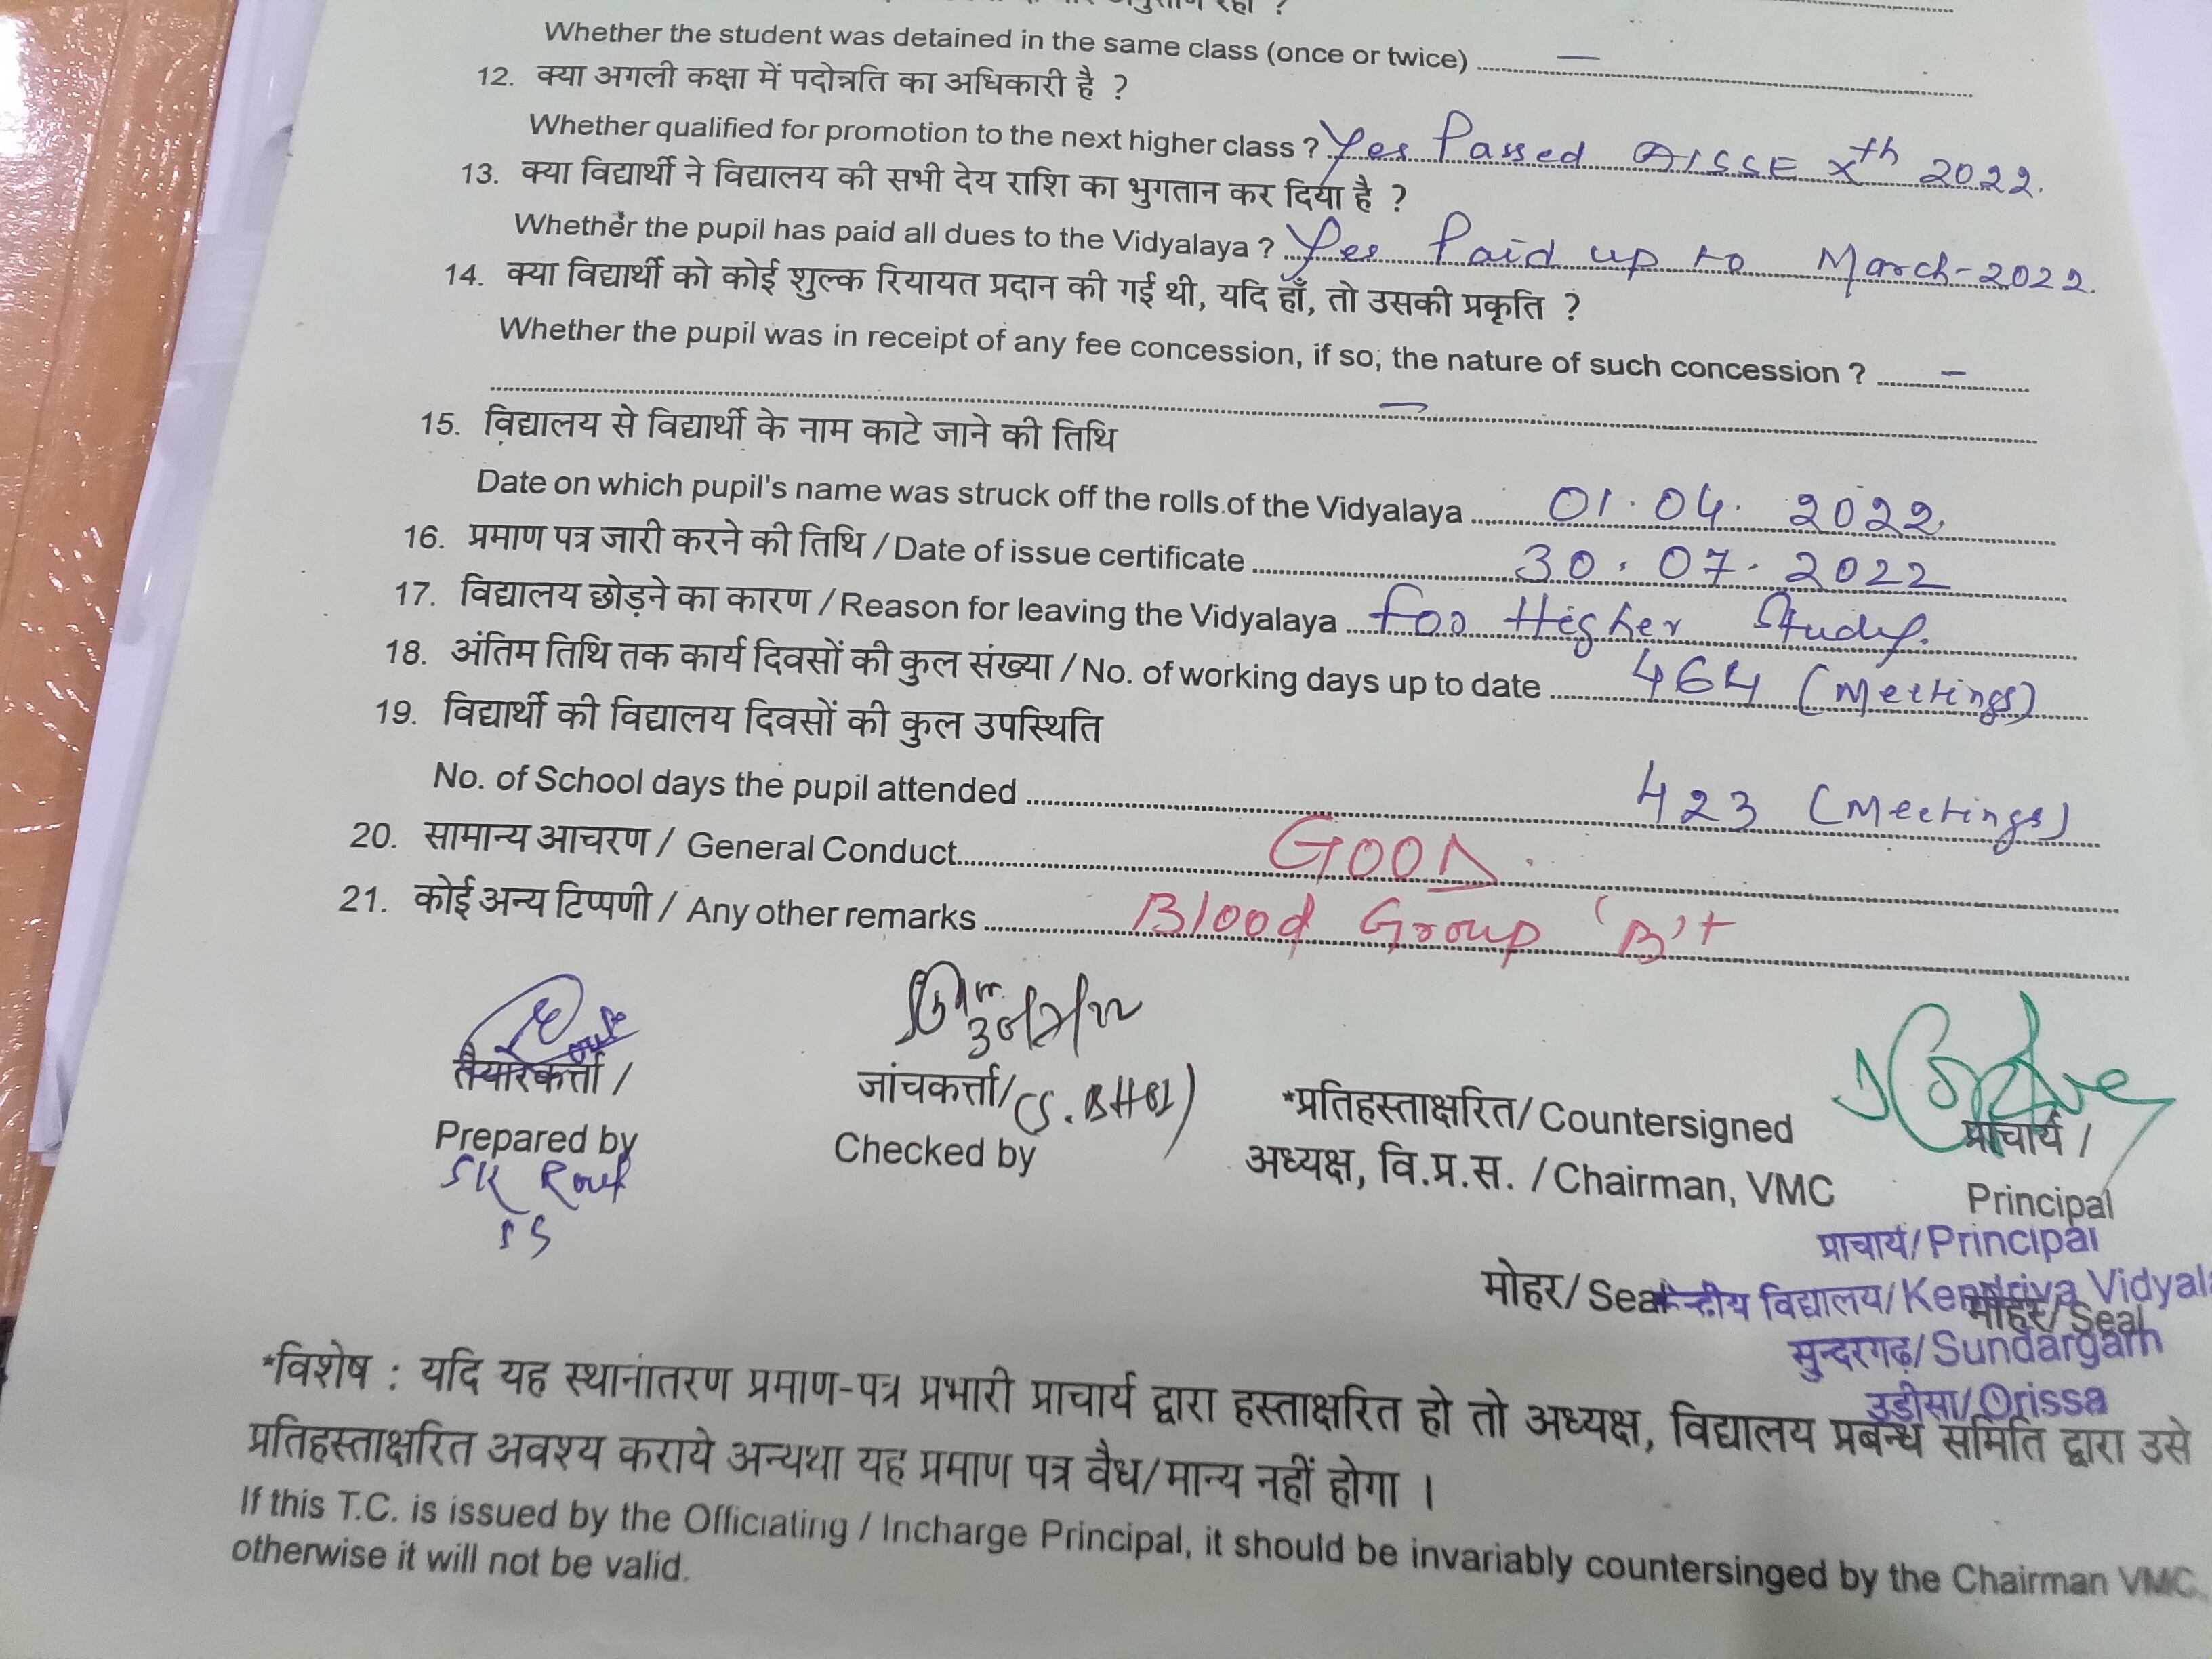 रहा ?
Whether the student was detained in the same class (once or twice) ........ —
12. क्या अगली कक्षा में पदोन्नति का अधिकारी है ?
Whether qualified for promotion to the next higher class ? Yes Passed AISSE Xth 2022.
13. क्या विद्यार्थी ने विद्यालय की सभी देय राशि का भुगतान कर दिया है ?
Whether the pupil has paid all dues to the Vidyalaya ? Yes Paid up to March-2022.
14. क्या विद्यार्थी को कोई शुल्क रियायत प्रदान की गई थी, यदि हाँ, तो उसकी प्रकृति ?
Whether the pupil was in receipt of any fee concession, if so, the nature of such concession ? ........ –
........ —
15. विद्यालय से विद्यार्थी के नाम काटे जाने की तिथि
Date on which pupil's name was struck off the rolls of the Vidyalaya ........ 01.04.2022.
16. प्रमाण पत्र जारी करने की तिथि / Date of issue certificate ........ 30.07.2022
17. विद्यालय छोड़ने का कारण / Reason for leaving the Vidyalaya ........ For Higher Study.
18. अंतिम तिथि तक कार्य दिवसों की कुल संख्या / No. of working days up to date ........ 464 (Meetings)
19. विद्यार्थी की विद्यालय दिवसों की कुल उपस्थिति
No. of School days the pupil attended ........ 423 (Meetings)
20. सामान्य आचरण / General Conduct........ GOOD.
21. कोई अन्य टिप्पणी / Any other remarks ........ Blood Group 'B'+
30/7/22
तैयारकर्त्ता /
Prepared by
SK Rout
जांचकर्त्ता/ (S. BHOI)
Checked by
*प्रतिहस्ताक्षरित/ Countersigned
अध्यक्ष, वि.प्र.स. / Chairman, VMC
प्राचार्य /
Principal
प्राचार्य/Principal
मोहर/ Seal
केन्द्रीय विद्यालय/Kendriya Vidyal
मोहर/ Seal
सुन्दरगढ़/Sundargarh
उड़ीसा/Orissa
*विशेष : यदि यह स्थानांतरण प्रमाण-पत्र प्रभारी प्राचार्य द्वारा हस्ताक्षरित हो तो अध्यक्ष, विद्यालय प्रबन्ध समिति द्वारा उसे
प्रतिहस्ताक्षरित अवश्य कराये अन्यथा यह प्रमाण पत्र वैध/मान्य नहीं होगा ।
If this T.C. is issued by the Officiating / Incharge Principal, it should be invariably countersinged by the Chairman VMC.
otherwise it will not be valid.